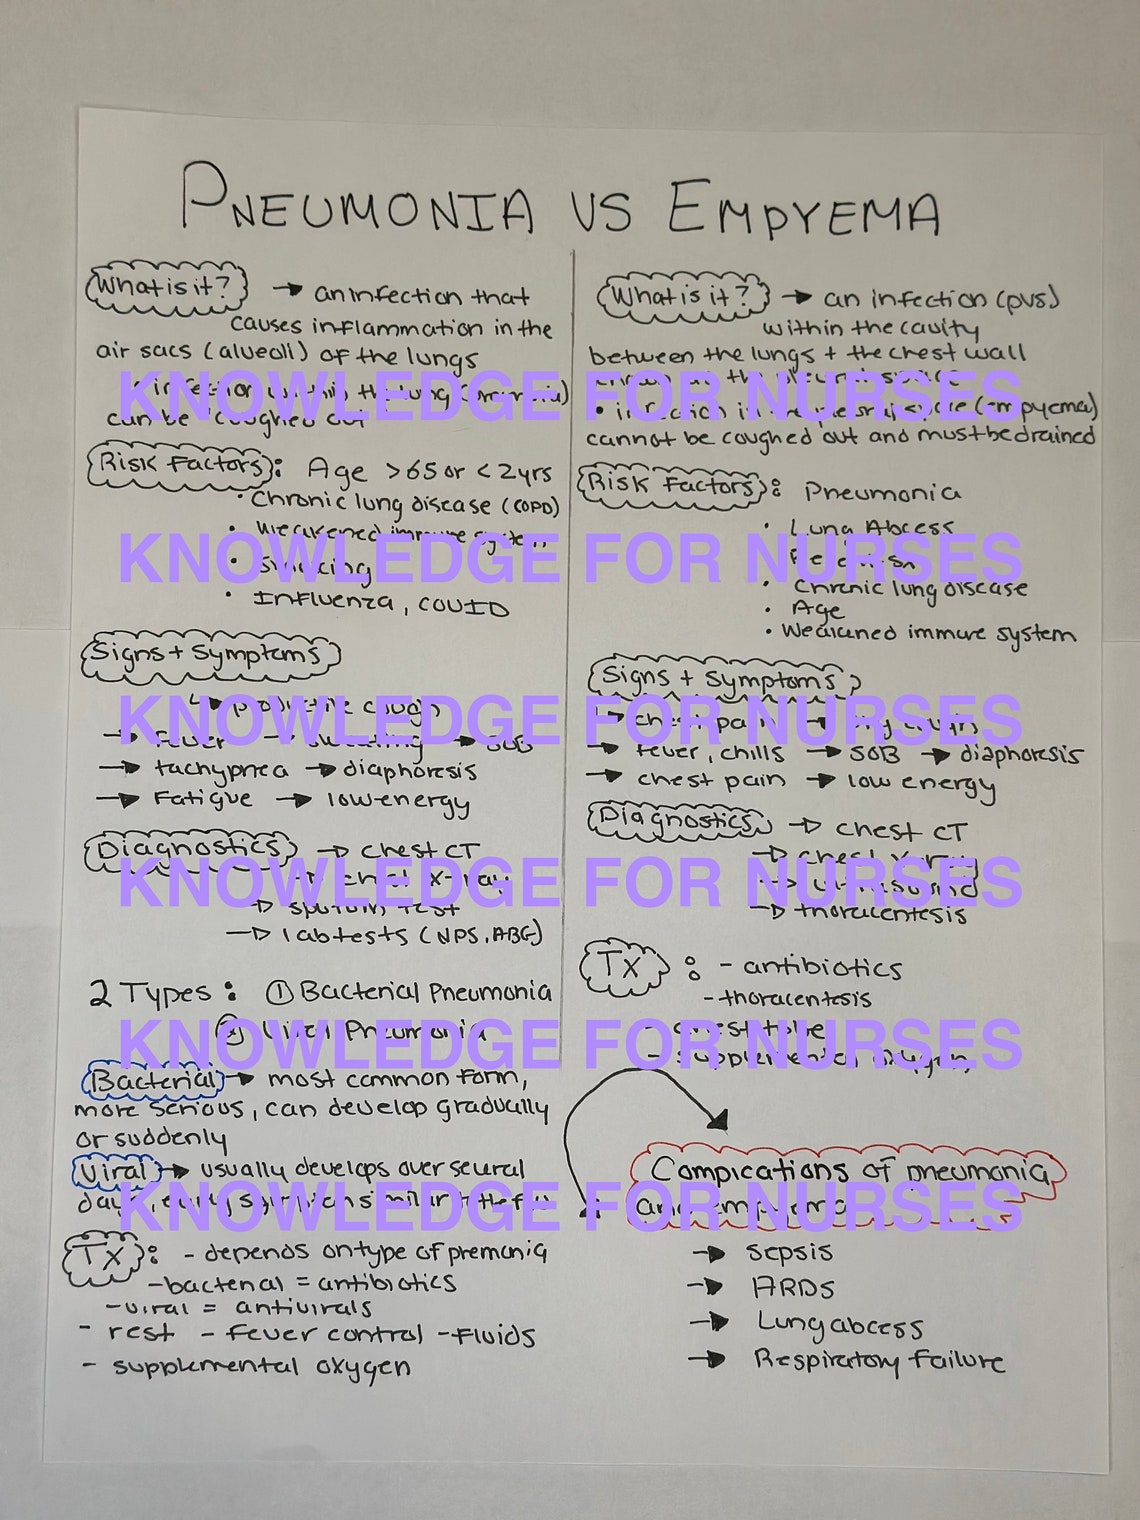 PNEUMONIA VS EMPYEMA
What is it? → an infection that
causes inflammation in the
air sacs (alveoli) of the lungs
infection within the lung
can be coughed out
Risk Factors: Age >65 or <2yrs
• Chronic lung disease (COPD)
• Weakened immune system
• Smoking
• Influenza, COVID
Signs + Symptoms
↳ productive cough
→ fever → sweating → SOB
→ tachypnea → diaphoresis
→ Fatigue → low energy
Diagnostics → chest CT
→ chest x-ray
→ sputum test
→ lab tests (NPS, ABG)
2 Types: ① Bacterial Pneumonia
② Viral Pneumonia
Bacterial → most common form,
more serious, can develop gradually
or suddenly
Viral → usually develops over several
days, early symptoms similar to the flu
Tx: - depends on type of premonia
- bacterial = antibiotics
- viral = antivirals
- rest - fever control - Fluids
- supplemental oxygen
What is it? → an infection (pus)
within the cavity
between the lungs + the chest wall
known as the pleural space
• infection in the pleural space (empyema)
cannot be coughed out and must be drained
Risk Factors: Pneumonia
• Lung Abcess
• Chronic lung disease
• Age
• Weakened immune system
Signs + Symptoms
→ chest pain → dry cough
→ fever, chills → SOB → diaphoresis
→ chest pain → low energy
Diagnostics → chest CT
→ chest x-ray
→ ultrasound
→ thoracentesis
Tx: - antibiotics
- thoracentesis
- chest tube
- supplemental oxygen
Compications of pneumonia
and empyema
→ sepsis
→ ARDS
→ Lung abcess
→ Respiratory Failure
KNOWLEDGE FOR NURSES
KNOWLEDGE FOR NURSES
KNOWLEDGE FOR NURSES
KNOWLEDGE FOR NURSES
KNOWLEDGE FOR NURSES
KNOWLEDGE FOR NURSES